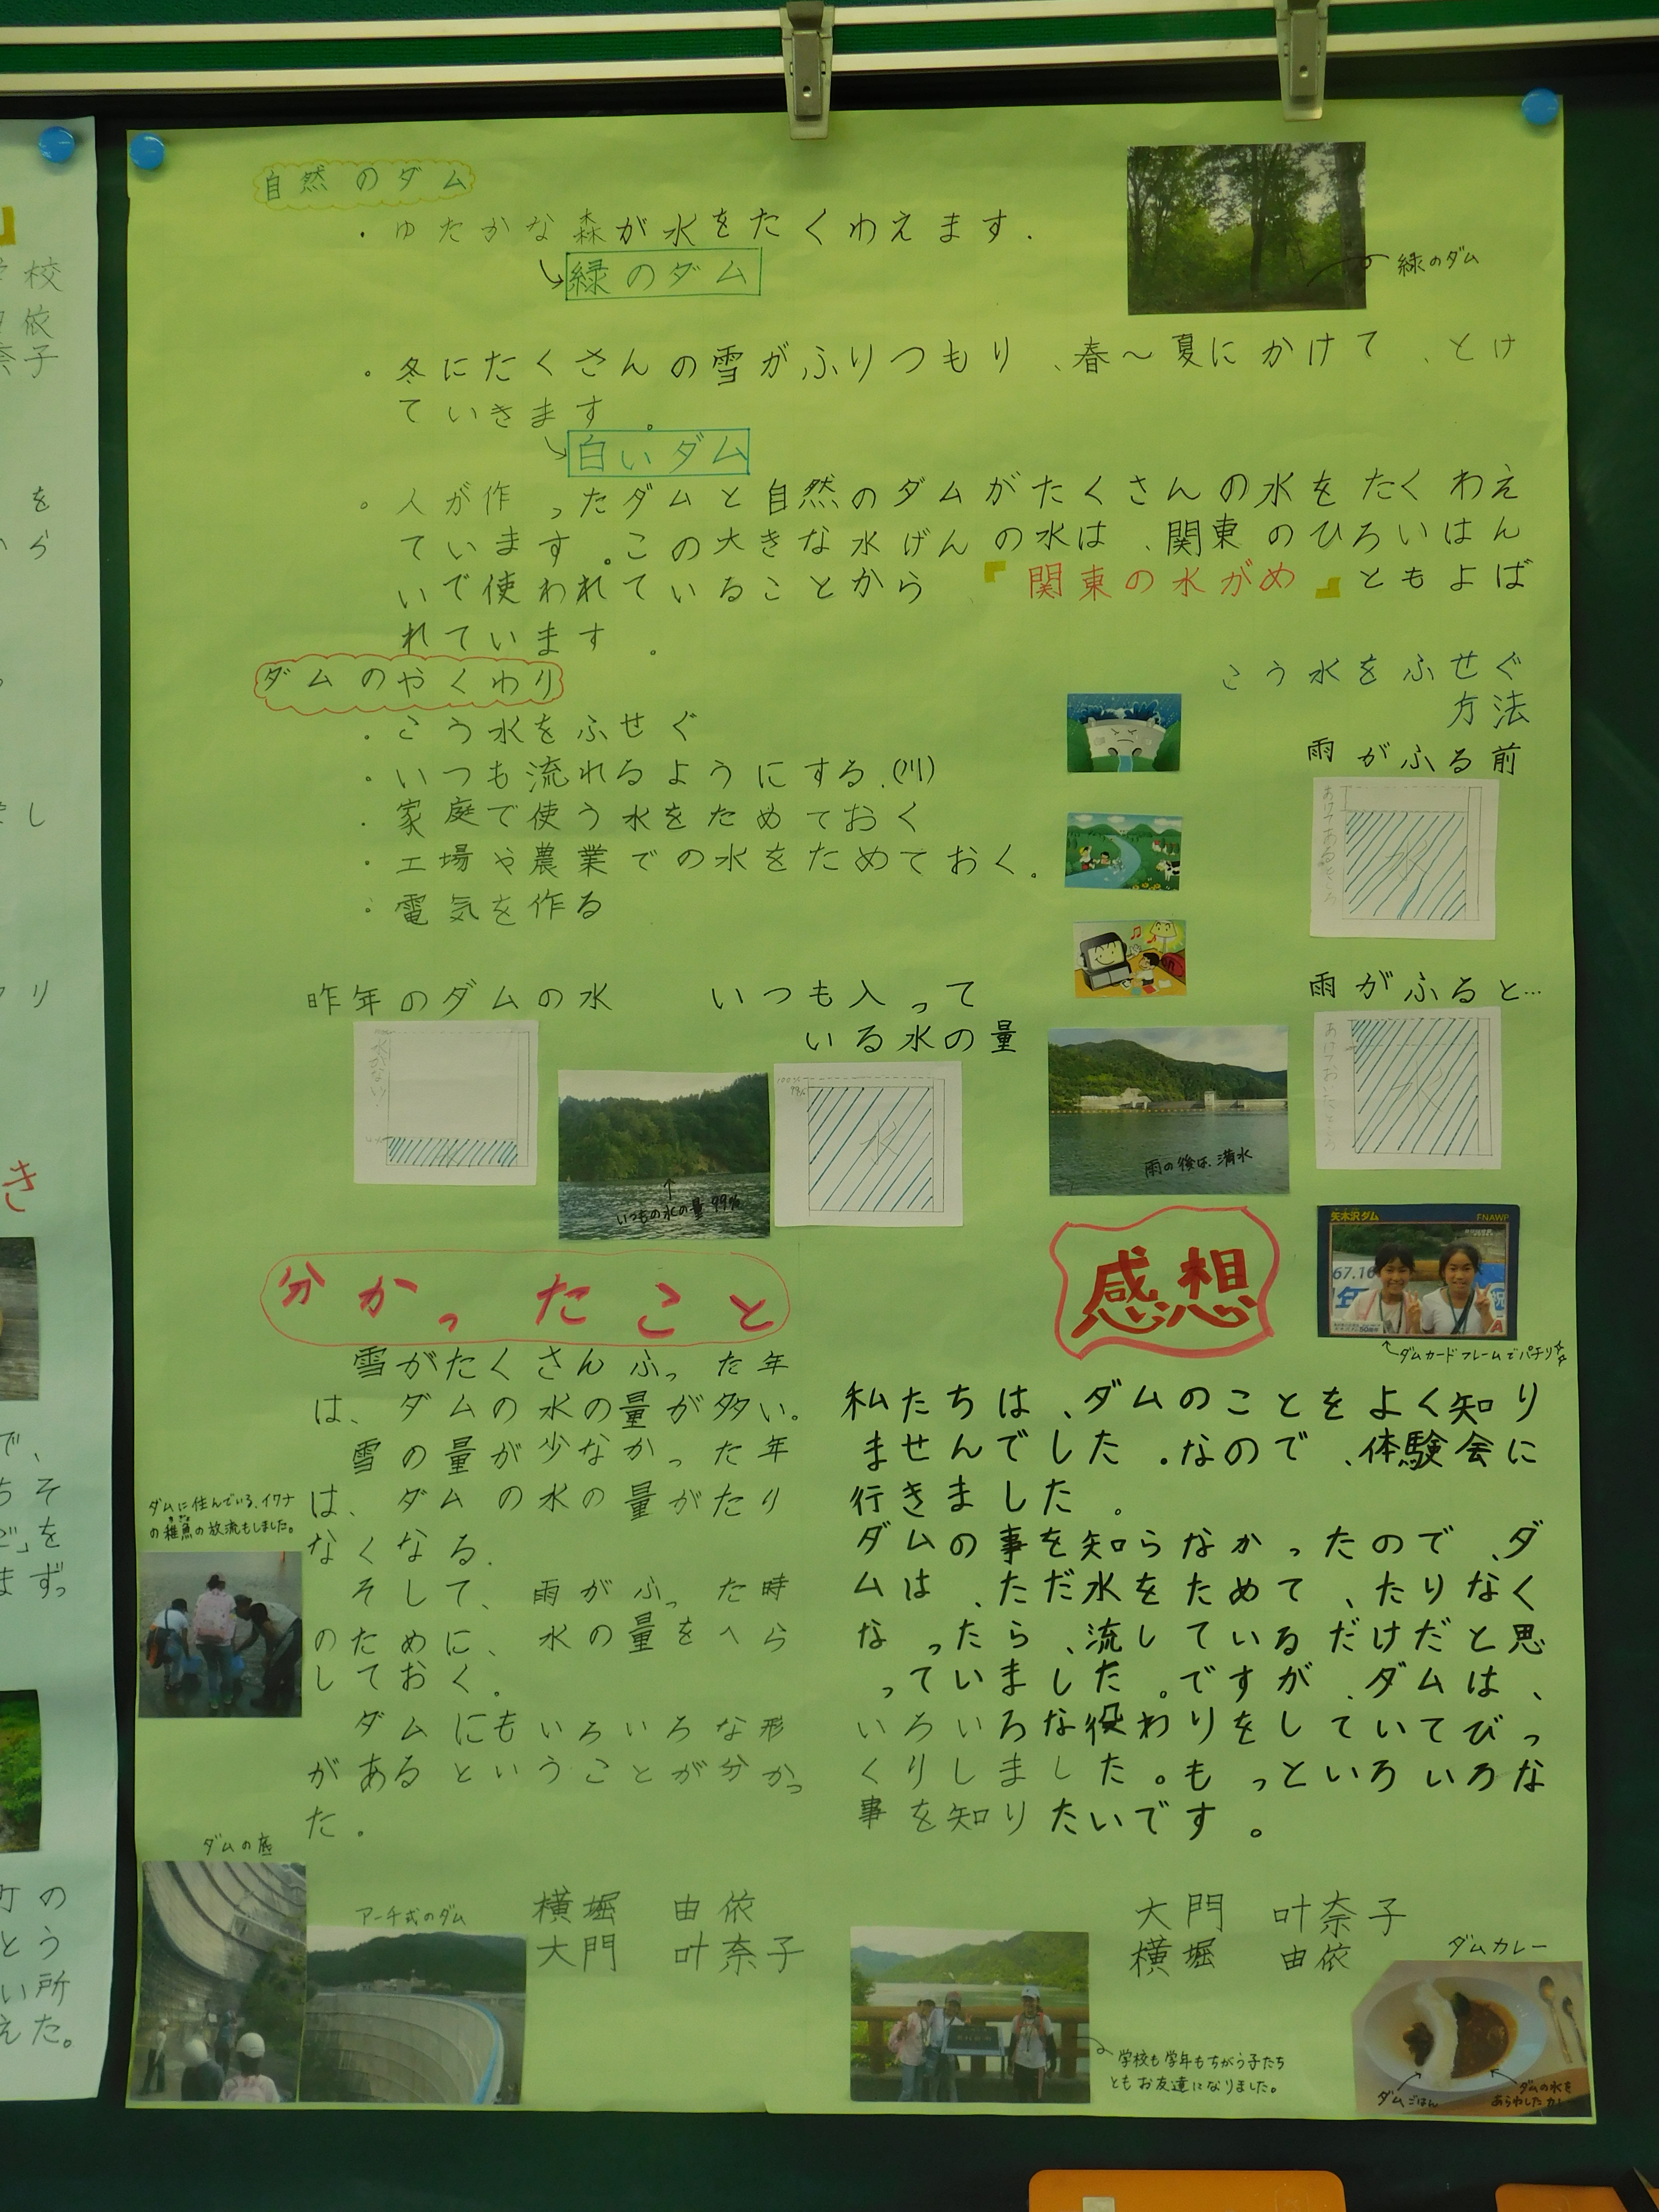 自然のダム
・ゆたかな森が水をたくわえます.
緑のダム
緑のダム
・冬にたくさんの雪がふりつもり、春〜夏にかけて、とけ
ていきます。
白いダム
・人が作ったダムと自然のダムがたくさんの水をたくわえ
ています。この大きな水げんの水は、関東のひろいはん
いで使われていることから『関東の水がめ』ともよば
れています。
ダムのやくわり
・こう水をふせぐ
・いつも流れるようにする.(川)
・家庭で使う水をためておく
・工場や農業での水をためておく.
・電気を作る
こう水をふせぐ
方法
雨がふる前
水
雨がふると…
水
昨年のダムの水
いつも入って
いる水の量
いつもの水の量99%
100%
99%
水
雨の後は、満水
分かったこと
雪がたくさんふった年
は、ダムの水の量が多い。
雪の量が少なかった年
は、ダムの水の量がたり
なくなる.
そして、雨がふった時
のために、水の量をへら
しておく.
ダムにもいろいろな形
があるということが分かっ
た.
ダムに住んでいる、イワナ
の稚魚の放流もしました。
ダムの底
アーチ式のダム
横堀 由依
大門 叶奈子
感想
矢木沢ダム
FNAWP
67.16
ダムカードフレームでパチリ☆☆
私たちは、ダムのことをよく知り
ませんでした。なので、体験会に
行きました。
ダムの事を知らなかったので、ダ
ムは、ただ水をためて、たりなく
なったら、流しているだけだと思
っていました。ですが、ダムは、
いろいろな役わりをしていてびっ
くりしました。もっといろいろな
事を知りたいです。
大門 叶奈子
横堀 由依
学校も学年もちがう子たち
ともお友達になりました。
ダムカレー
ダムごはん
ダムの水を
あらわした
校
依
奈子
を
から
し
り
き
で、
ちそ
を
まずっ
町の
とう
い所
えた。